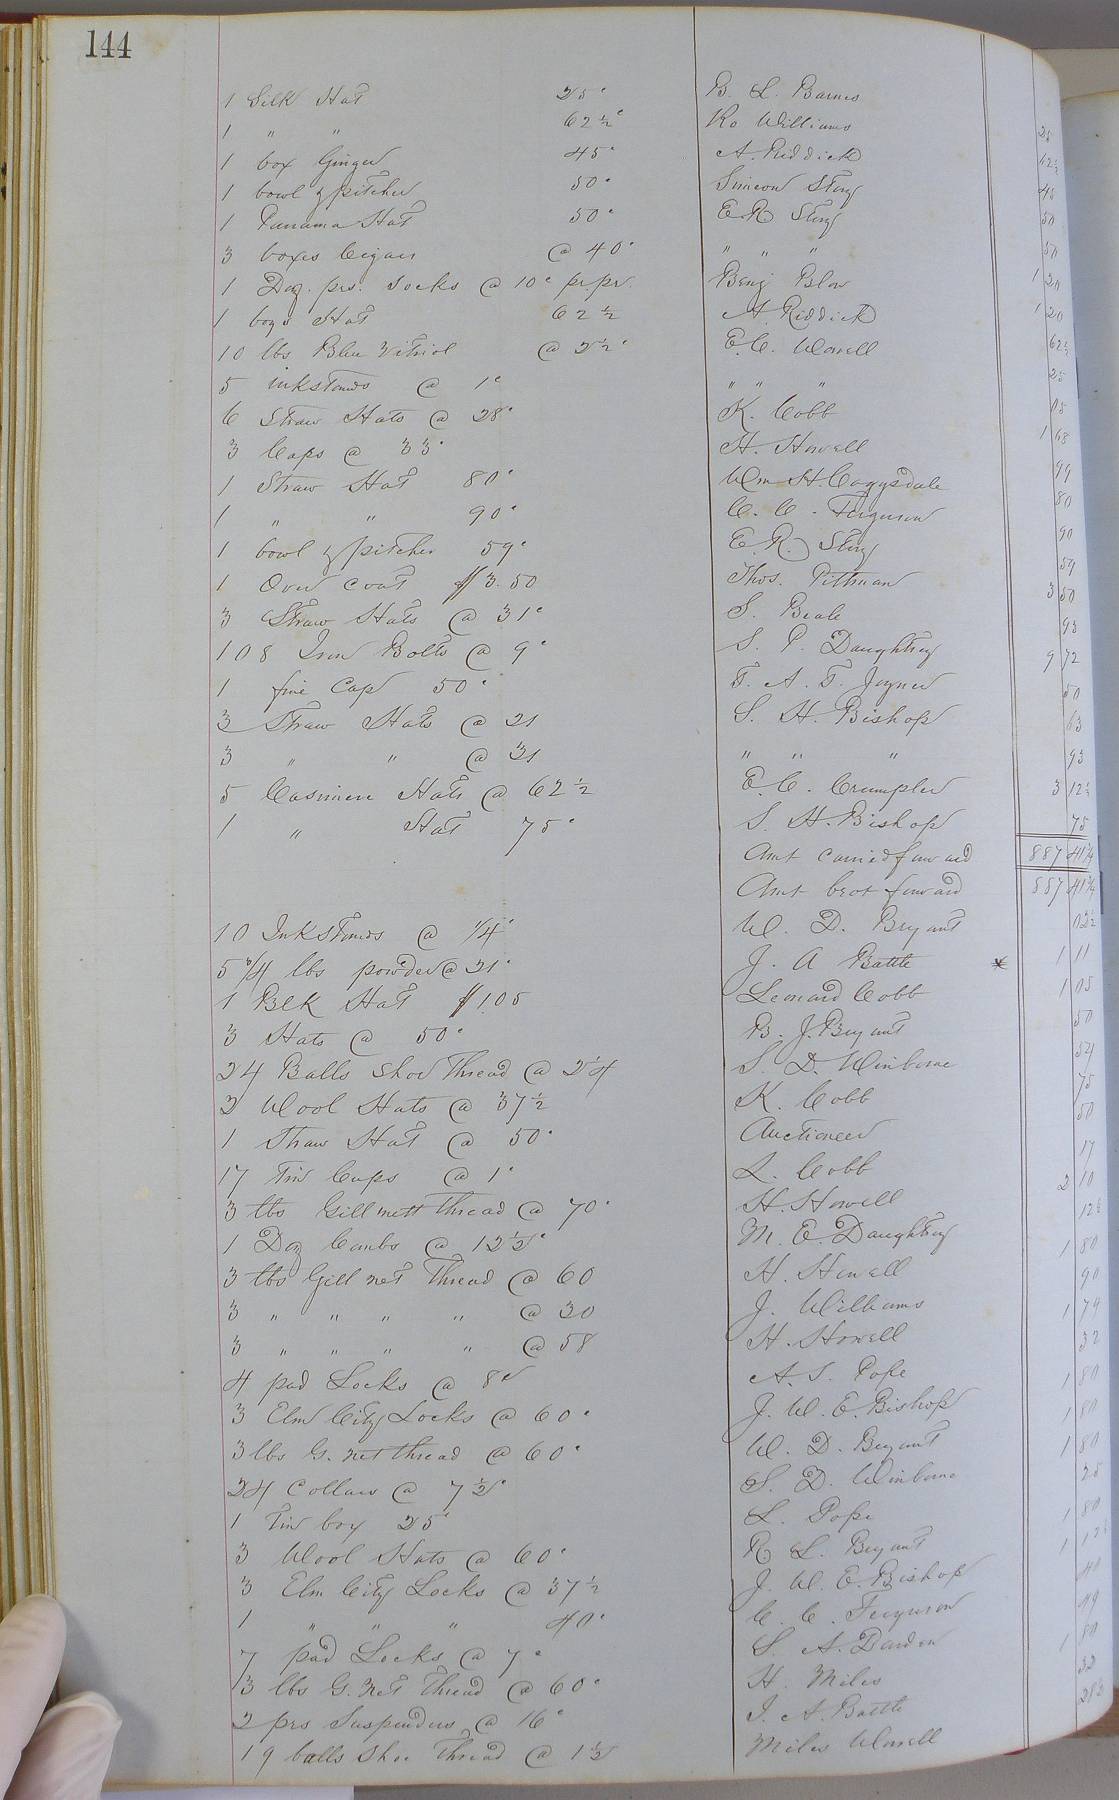 144
1 Silk Hat 25c B. L. Barnes 25
1 " " 62 1/2c Ro Williams 62 1/2
1 box Ginger 45c A. Riddick 45
1 bowl & pitcher 50c Simeon Story 50
1 Panama Hat 50c E R Story 50
3 boxes Cigars @ 40c " " " 1 20
1 Doz. prs. Socks @ 10c pr pr. Benj Blow 1 20
1 boys Hat 62 1/2 A Riddick 62 1/2
10 lbs Blue Vitriol @ 2 1/2c E. C. Worrell 25
5 inkstands @ 1c " " " 05
6 Straw Hats @ 28c K. Cobb 1 68
3 Caps @ 33c H. Howell 99
1 Straw Hat 80c Wm H. Coggsdale 80
1 " " 90c C. C. Ferguson 90
1 bowl & pitcher 59c E. R. Story 59
1 Over coat $3.50 Thos. Pittman 3 50
3 Straw Hats @ 31c S. Beale 93
108 Iron Bolts @ 9c S. P. Daughtrey 9 72
1 fine Cap 50c T. A. T. Joyner 50
3 Straw Hats @ 21 S. H. Bishop 63
3 " " @ 31 " " " 93
5 Casimere Hats @ 62 1/2 E. C. Crumpler 3 12 1/2
1 " Hat 75c S. H. Bishop 75
Amt carried forward 887 41 3/4
Amt brot forward 887 41 3/4
10 Inkstands @ 1/4c W. D. Bryant 02 1/2
5 3/4 lbs powder @ 21c J. A Battle * 1 11
1 Blk Hat $1.05 Leonard Cobb 1 05
3 Hats @ 50c B. J. Bryant 50
24 Balls Shoe Thread @ 2 1/4 S. D. Winborne 54
2 Wool Hats @ 37 1/2 K. Cobb 75
1 Straw Hat @ 50c Auctioneer 50
17 Tin Cups @ 1c L. Cobb 17
3 lbs Gill nett thread @ 70c H. Howell 2 10
1 Doz Combs @ 12 1/2c M. E. Daughtrey 12 1/2
3 lbs Gill net Thread @ 60 H. Howell 1 80
3 " " " " @ 30 J. Williams 90
3 " " " " @ 58 H. Howell 1 74
4 pad Locks @ 8c A. S. Pope 32
3 Elm City Locks @ 60c J. W. E. Bishop 1 80
3 lbs G. net thread @ 60c W. D. Bryant 1 80
24 Collars @ 7 1/2c S. D. Winborne 1 80
1 Tin box 25c L. Pope 25
3 Wool Hats @ 60c R L. Bryant 1 80
3 Elm City Locks @ 37 1/2 J. W. E. Bishop 1 12 1/2
1 " " " 40c C. C. Ferguson 40
7 pad Locks @ 7c S. A. Darden 49
3 lbs G. Net Thread @ 60c H. Miles 1 80
2 prs Suspenders @ 16c J. A. Battle 32
19 balls Shoe Thread @ 1 1/2 Miles Worrell 28 1/2